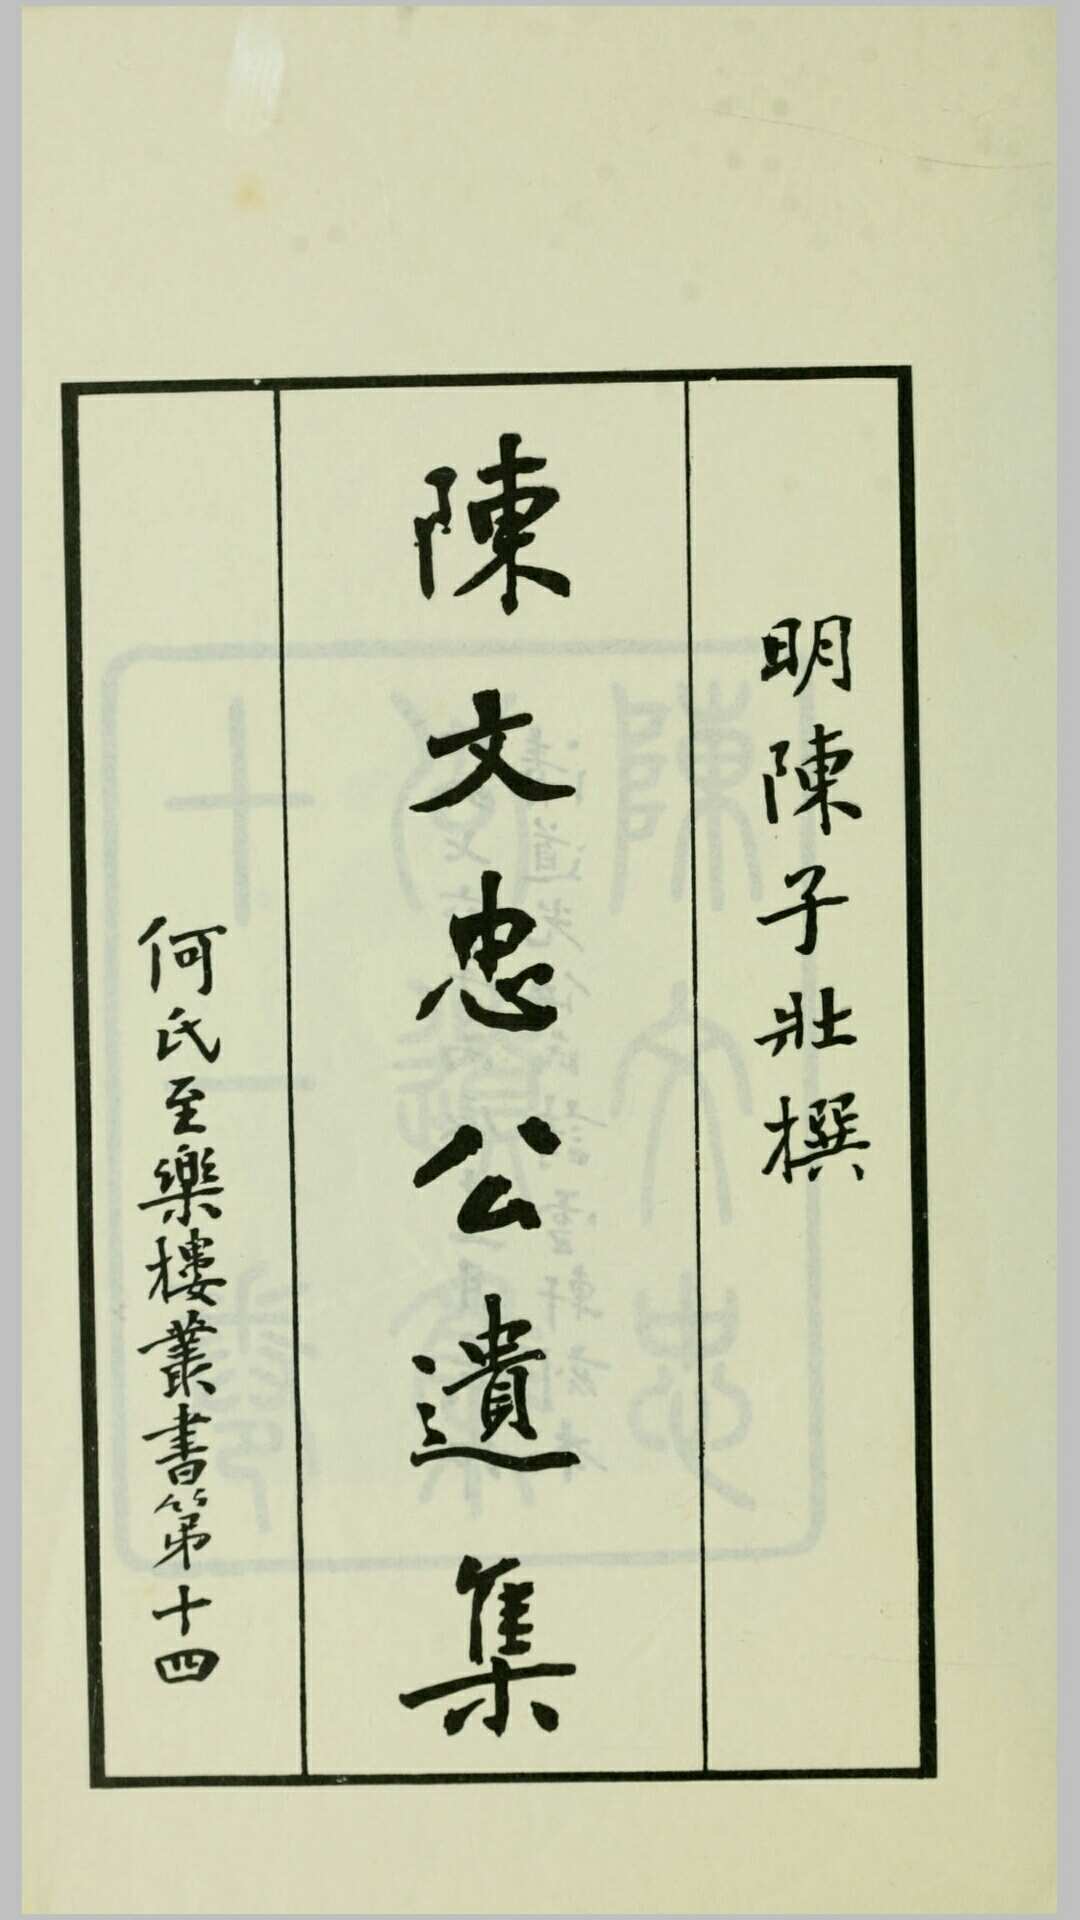 明陳子壯撰
陳文忠公遺集
何氏至樂樓叢書第十四